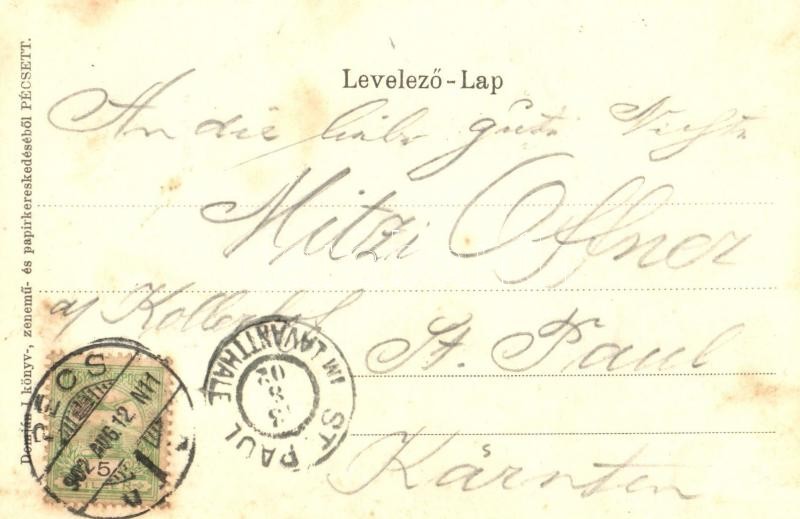 Levelező-Lap
An die liebe gute Nichte
Mitzi Offner
a/ Kollerhof
St. Paul
Kärnten
Domján I. könyv-, zenemű- és papirkereskedéséből PÉCSETT.
PÉCS
902 AUG. 12 N11
5
ST. PAUL
IM LAVANTTHALE
13 8 02